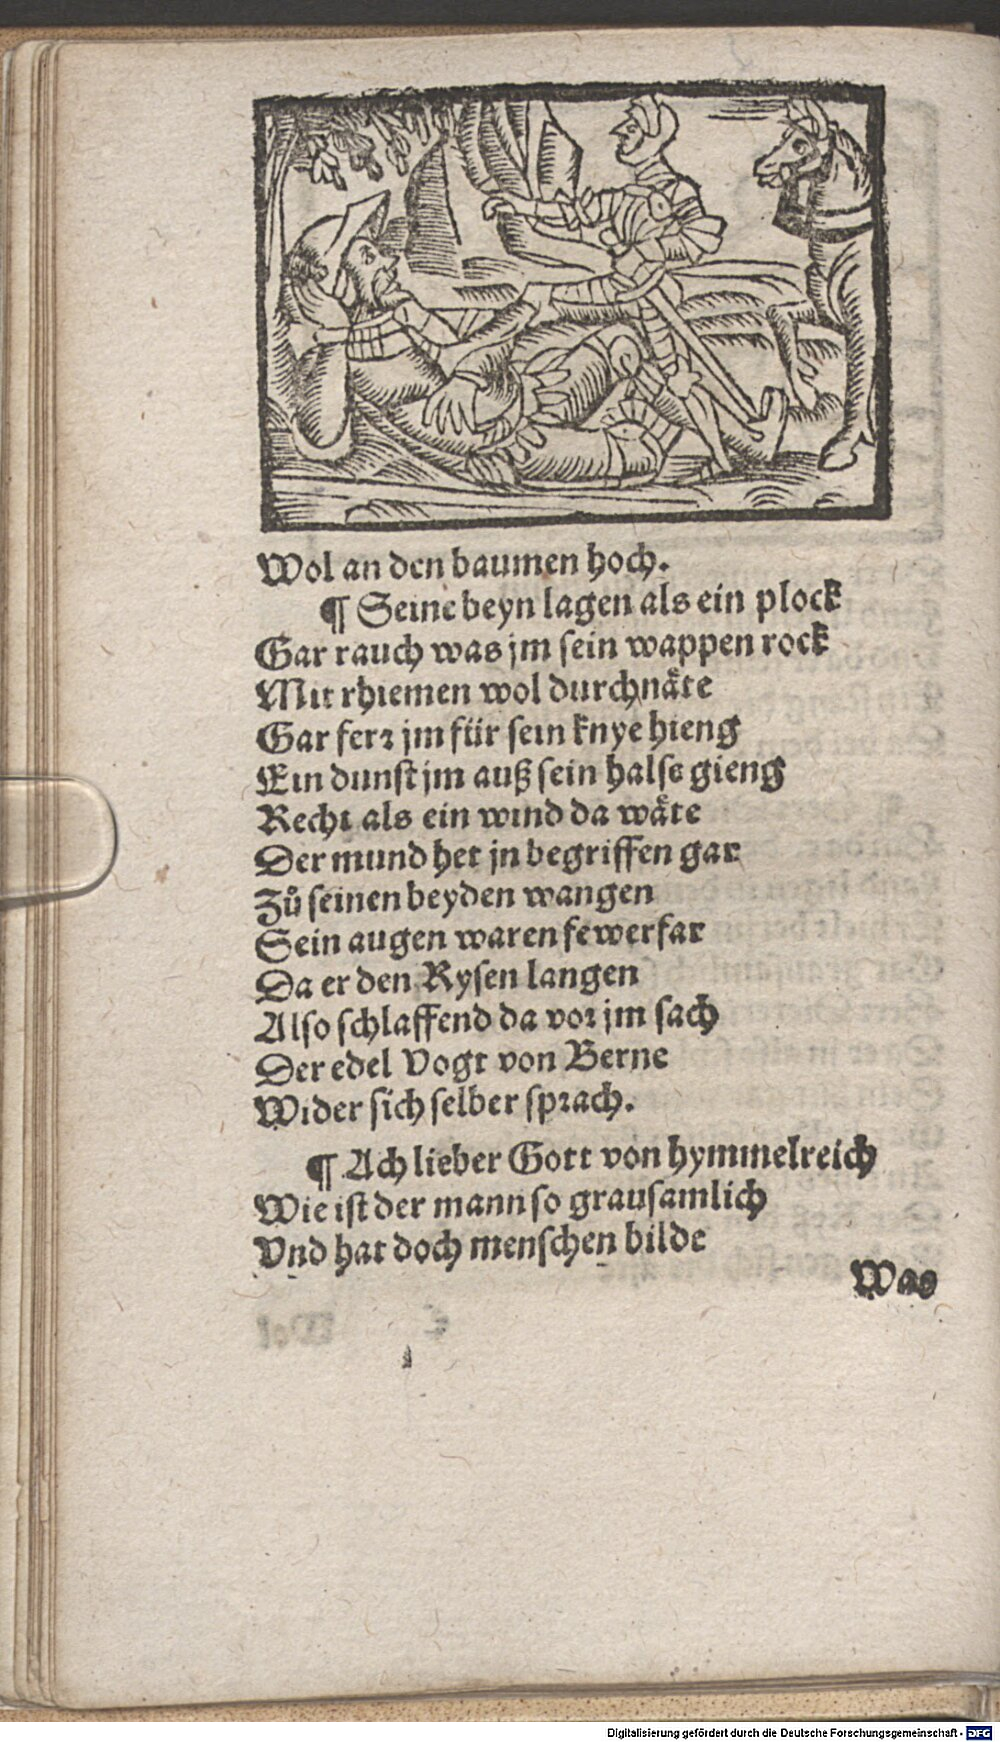 Wol an den baumen hoch.
¶ Seine beyn lagen als ein plock
Gar rauch was jm sein wappen rock
Mit rhiemen wol durchnåte
Gar ferr jm für sein knye hieng
Ein dunst jm auß sein halse gieng
Recht als ein wind da wåte
Der mund het jn begriffen gar
Zů seinen beyden wangen
Sein augen waren fewerfar
Da er den Rysen langen
Also schlaffend da vor jm sach
Der edel Vogt von Berne
Wider sich selber sprach.
¶ Ach lieber Gott von hymmelreich
Wie ist der mann so grausamlich
Vnd hat doch menschen bilde
Was
Digitalisierung gefördert durch die Deutsche Forschungsgemeinschaft - DFG